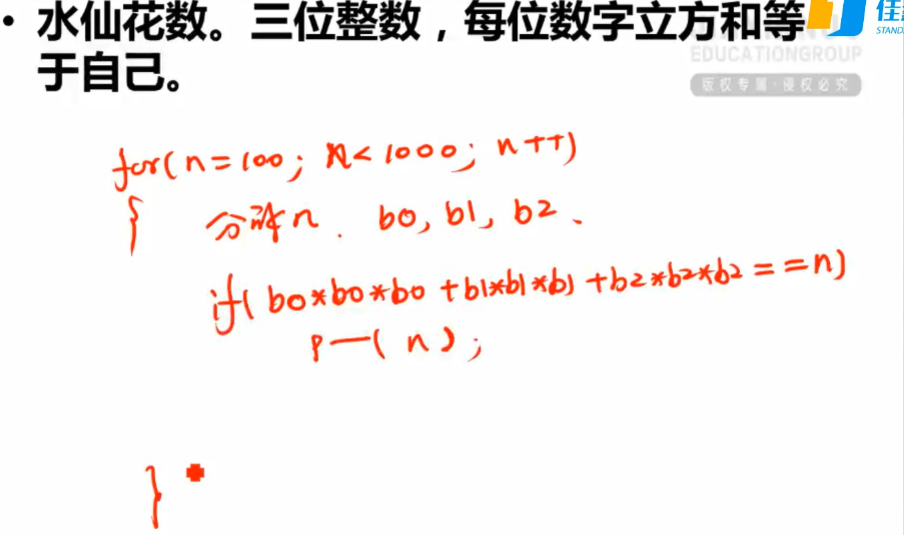 • 水仙花数。三位整数，每位数字立方和等
于自己。
佳
STAND
EDUCATIONGROUP
版权专属·侵权必究
for(n=100; n<1000; n++)
{ 分解n. b0, b1, b2、
if( b0*b0*b0 +b1*b1*b1 +b2*b2*b2 = =n)
p—( n ) ;
}